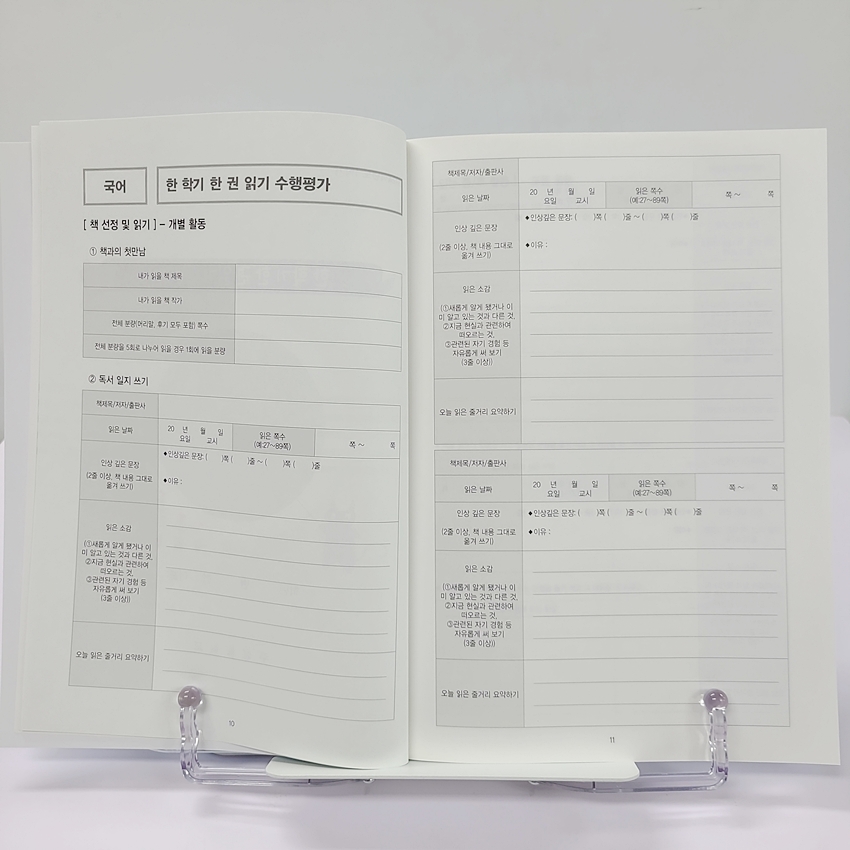 국어
한 학기 한 권 읽기 수행평가
[ 책 선정 및 읽기 ] – 개별 활동
① 책과의 첫만남
내가 읽을 책 제목
내가 읽을 책 작가
전체 분량(머리말, 후기 모두 포함) 쪽수
전체 분량을 5회로 나누어 읽을 경우 1회에 읽을 분량
② 독서 일지 쓰기
책제목/저자/출판사
읽은 날짜
20 년 월 일
요일 교시
읽은 쪽수
(예:27~89쪽)
쪽 ~ 쪽
인상 깊은 문장
(2줄 이상, 책 내용 그대로
옮겨 쓰기)
♦인상깊은 문장: ( )쪽 ( )줄 ~ ( )쪽 ( )줄
♦이유 :
읽은 소감
(①새롭게 알게 됐거나 이
미 알고 있는 것과 다른 것,
②지금 현실과 관련하여
떠오르는 것,
③관련된 자기 경험 등
자유롭게 써 보기
(3줄 이상))
오늘 읽은 줄거리 요약하기
10
책제목/저자/출판사
읽은 날짜
20 년 월 일
요일 교시
읽은 쪽수
(예:27~89쪽)
쪽 ~ 쪽
인상 깊은 문장
(2줄 이상, 책 내용 그대로
옮겨 쓰기)
♦인상깊은 문장: ( )쪽 ( )줄 ~ ( )쪽 ( )줄
♦이유 :
읽은 소감
(①새롭게 알게 됐거나 이
미 알고 있는 것과 다른 것,
②지금 현실과 관련하여
떠오르는 것,
③관련된 자기 경험 등
자유롭게 써 보기
(3줄 이상))
오늘 읽은 줄거리 요약하기
책제목/저자/출판사
읽은 날짜
20 년 월 일
요일 교시
읽은 쪽수
(예:27~89쪽)
쪽 ~ 쪽
인상 깊은 문장
(2줄 이상, 책 내용 그대로
옮겨 쓰기)
♦인상깊은 문장: ( )쪽 ( )줄 ~ ( )쪽 ( )줄
♦이유 :
읽은 소감
(①새롭게 알게 됐거나 이
미 알고 있는 것과 다른 것,
②지금 현실과 관련하여
떠오르는 것,
③관련된 자기 경험 등
자유롭게 써 보기
(3줄 이상))
오늘 읽은 줄거리 요약하기
11